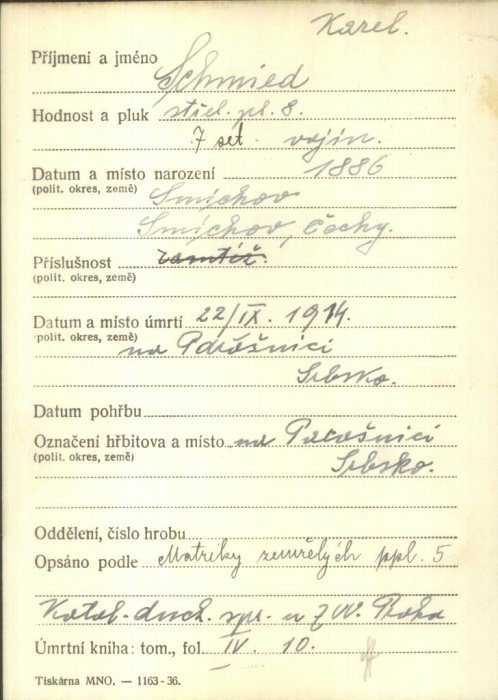 Karel.
Příjmení a jméno Schmied
Hodnost a pluk střel. pl. 8.
7 set. vojín.
Datum a místo narození 1886
(polit. okres, země) Smíchov
Smíchov, Čechy.
Příslušnost tamtéž.
(polit. okres, země)
Datum a místo úmrtí 22/IX. 1914.
(polit. okres, země) na
Srbsko.
Datum pohřbu
Označení hřbitova a místo na
(polit. okres, země) Srbsko.
Oddělení, číslo hrobu
Opsáno podle Matriky zemřelých ppl. 5
Katol. duch. spr. u ZVV. Praha
Úmrtní kniha: tom., fol. IV. 10.
Tiskárna MNO. — 1163-36.